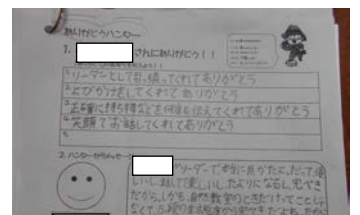 ありがとうハンター
1. さんにありがとう！！
1.リーダーとして引っ張ってくれてありがとう
2.よびかけをしてくれてありがとう
3.正確に持ち物などを何度も伝えてくれてありがとう
4.笑顔でお話してくれてありがとう
5.
2.ハンターからメッセージ
がリーダーで本当に良かったよ。だって優
しいし話して楽しいし、たよりになるし、完ぺき
だから。しかも自然教室のときだけってことじゃ